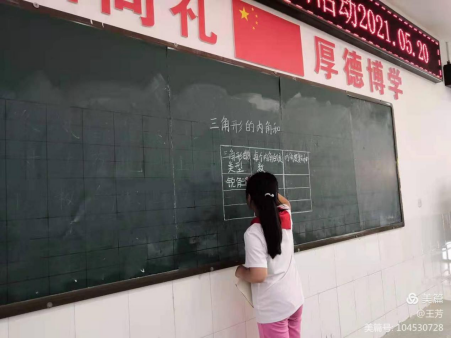 尚礼
活动2021.05.20
厚德博学
三角形的内角和
三角形的 每个内角的度
类型 数
锐角
美篇
@王芳
美篇号:104530728